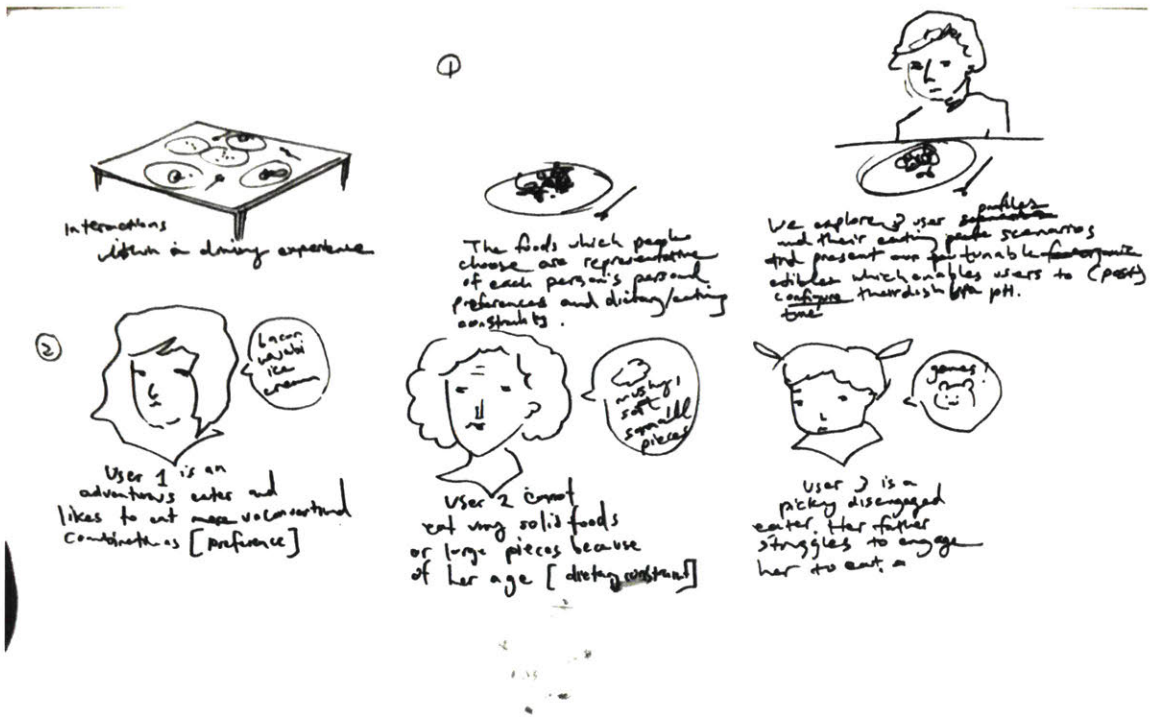 ①
Interactions
within a dining experience
The foods which people
choose are representative
of each person's personal
preferences and dietary/eating
constraints.
We explore 3 user profiles
and their eating scenarios
and present our tunable
edibles which enables users to (post)
configure their dish with pH.
time
②
bacon
wasabi
ice
cream
User 1 is an
adventurous eater and
likes to eat more unconventional
combinations [preference]
mushy,
soft
small
pieces
User 2 cannot
eat very solid foods
or large pieces because
of her age [dietary constraint]
games!
User 3 is a
picky disengaged
eater. Her father
struggles to engage
her to eat.